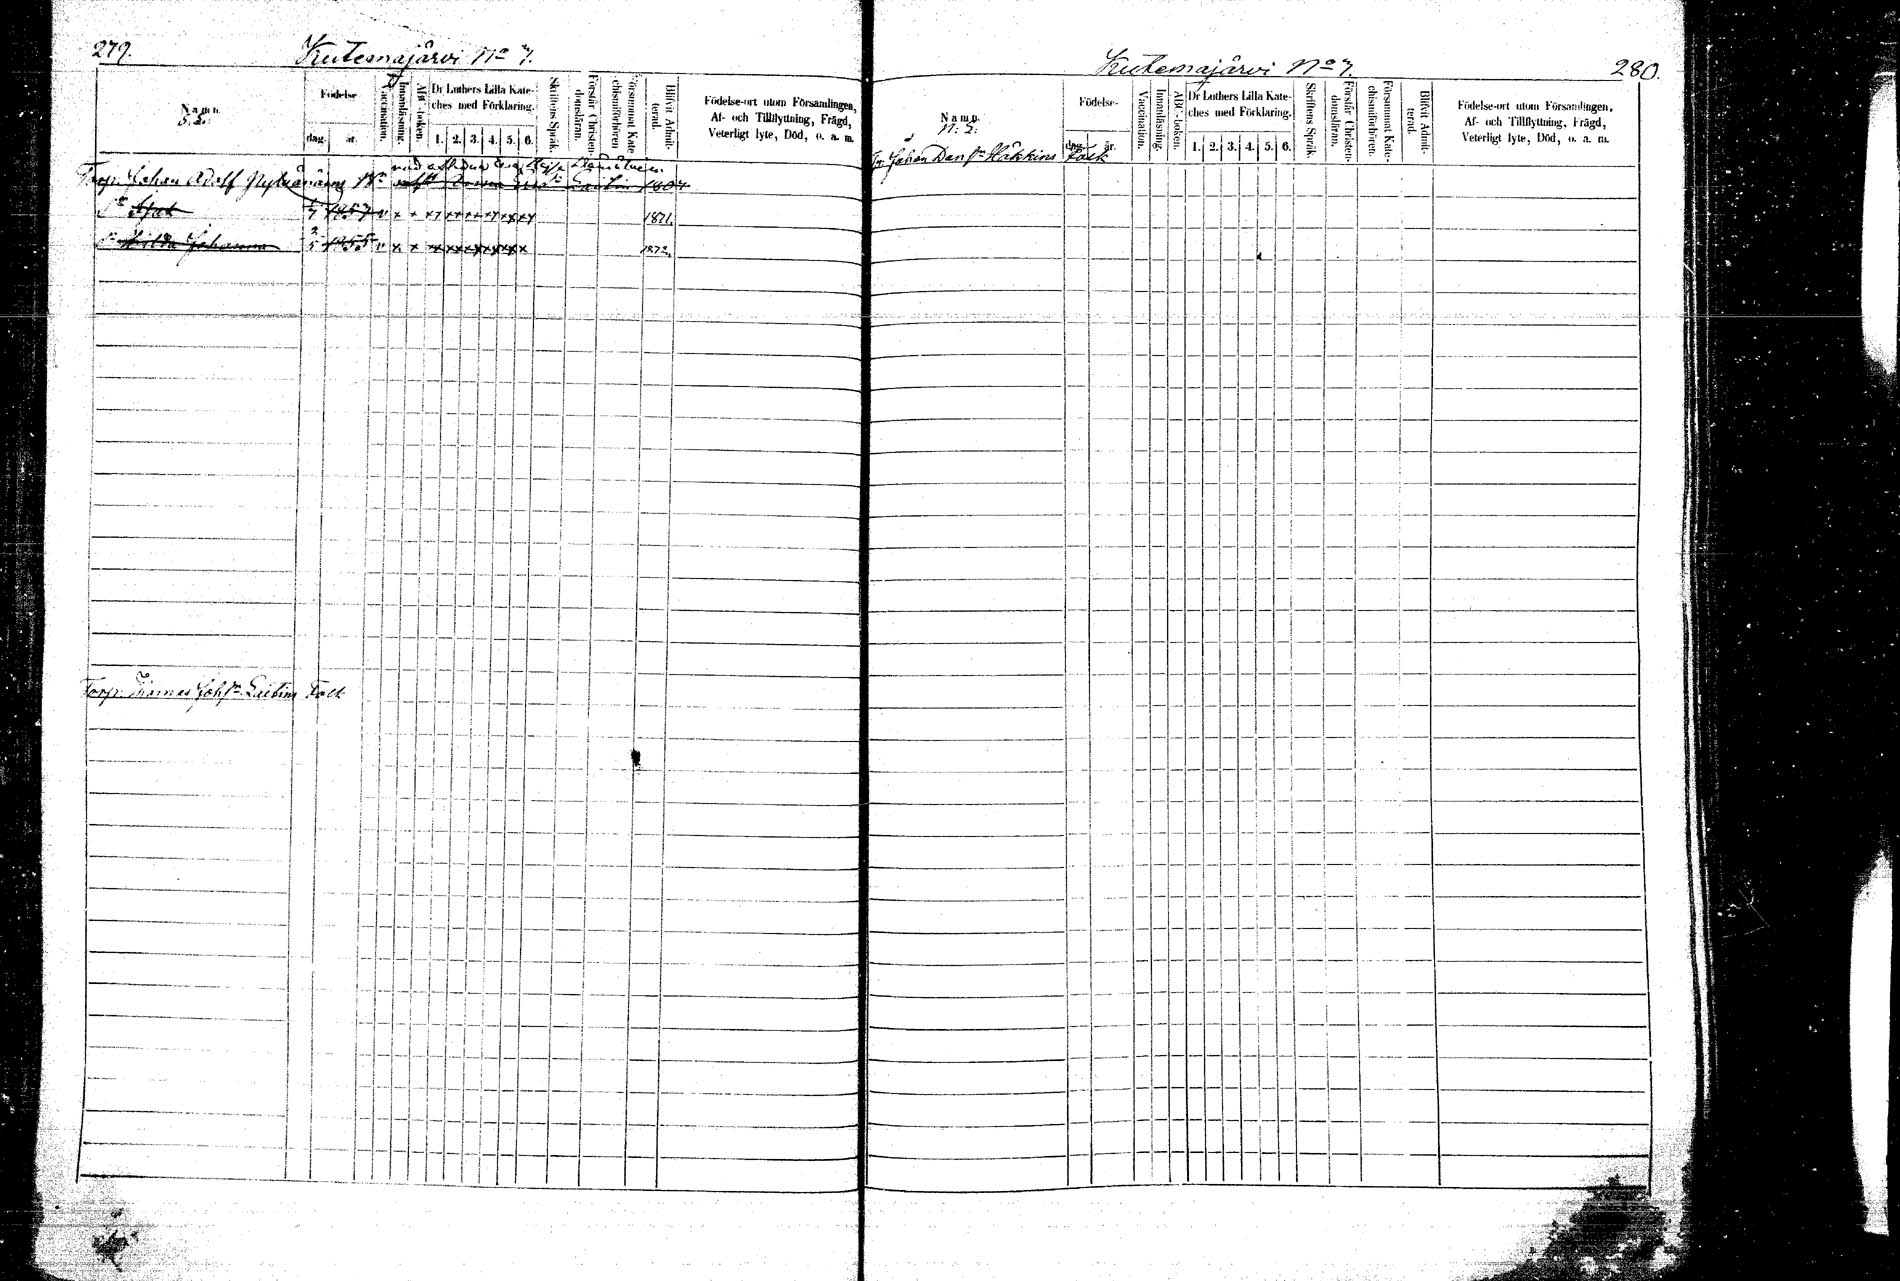 279.
Kutemajärvi No 7.
Namn.
Födelse
dag. år.
Vaccination.
Innanläsning.
ABC-boken.
Dr Luthers Lilla Kate-
ches med Förklaring.
1. 2. 3. 4. 5. 6.
Skriftens Språk.
Förstår Christen-
domsläran.
Försummat Kate-
chismiförhören
Blifvit Admit-
terad.
Födelse-ort utom Församlingen,
Af- och Tillflyttning, Frägd,
Veterligt lyte, Död, o. a. m.
Torp. Johan Adolf
1857 v x x 1871.
Hilda Johanna 1855 v x x 1872.
Torp. Thomas Leitin Folk
Kutemajärvi No 7.
280.
Namn.
N. S.
Födelse-
dag. år.
Vaccination.
Innanläsning.
ABC-boken.
Dr Luthers Lilla Kate-
ches med Förklaring.
1. 2. 3. 4. 5. 6.
Skriftens Språk
Förstår Christen-
domsläran.
Försummat Kate-
chismiförhören.
Blifvit Admit-
terad.
Födelse-ort utom Församlingen,
Af- och Tillflyttning, Frägd,
Veterligt lyte, Död, o. a. m.
Johan Häkkins Folk